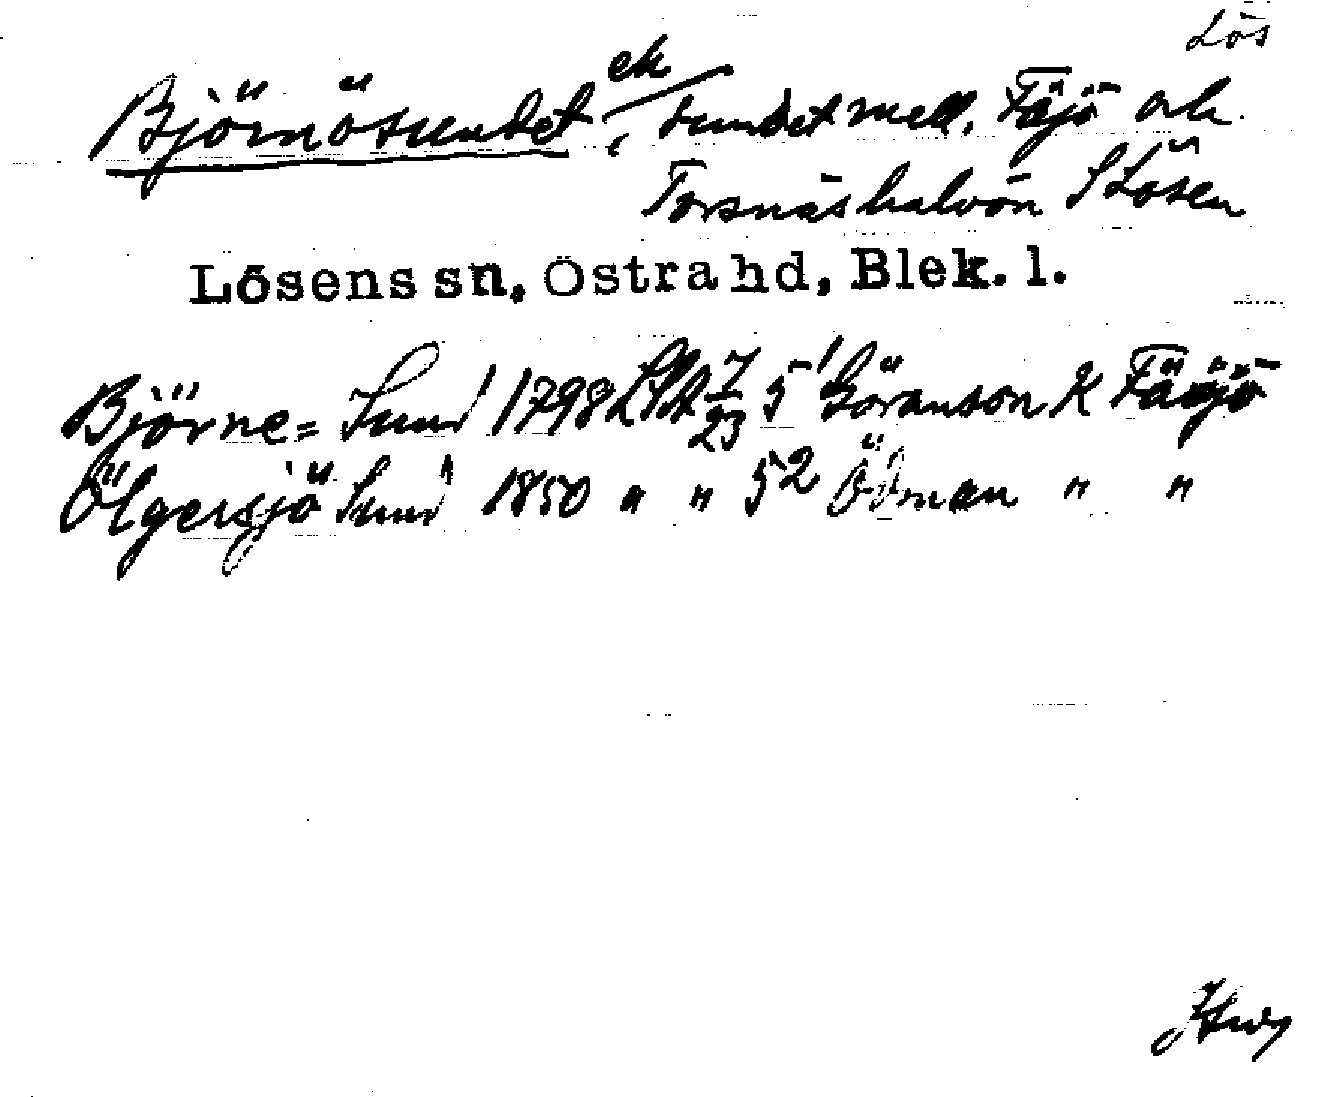 Lös
Björnösundet, ek sundet mell. Fäjö och
Torsnäshalvön S Lösen
Lösens sn, Östra hd, Blek. l.
Björne= Sund 1798 LSA 7/23 5¹ Göranson K Fäejö
Ölgersjö Sund 1850 " " 5² Ödman " "